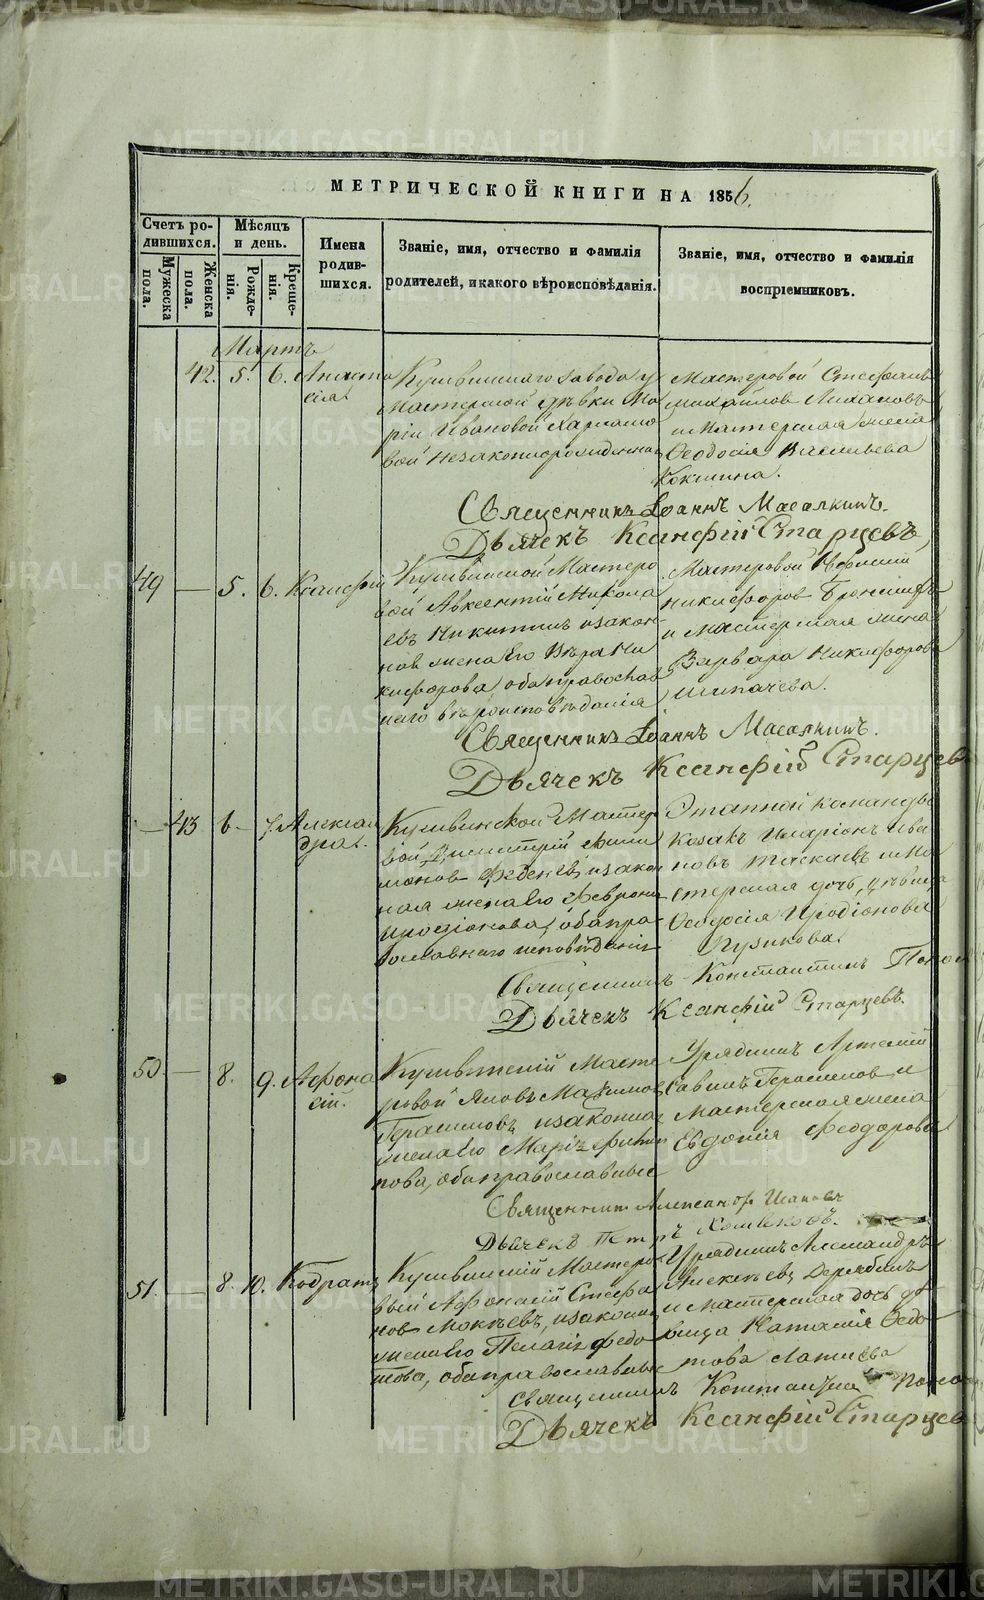 МЕТРИЧЕСКОЙ КНИГИ НА 1856.
Счетъ родившихся.
Мужеска пола.
Женска пола.
Мѣсяцъ и день.
Рожденія.
Крещенія.
Имена родившихся.
Званіе, имя, отчество и фамилія
родителей, и какого вѣроисповѣданія.
Званіе, имя, отчество и фамилія
воспріемниковъ.
Мартъ
42. 5. 6. Анаста
сія.
Кушвинскаго завода у
мастерской дѣвки Ма
ріи Ивановой
вой незаконнорожденная
Мастеровой Стефанъ
Михайлов
и мастерская жена
Ѳеодосія Васильева
Кокшина.
Священникъ Іоаннъ Масалкинъ.
Дьячекъ Ксанфій Старцевъ,
49 — 5. 6. Ксанфій
Кушвинской Мастеро
вой Авксентій Никола
евъ Никитинъ изакон-
ная жена его Вѣра Ни
кифорова, оба православ
наго вѣроисповѣданія
Мастеровой
Никифоров
и мастерская жена
Варвара Никифорова
Шипачева.
Священникъ Іоаннъ Масалкинъ.
Дьячекъ Ксанфій Старцев
— 43 6 — 7. Алексан
дра.
Кушвинской Мастер
вой Димитрій Фили
монов изакон
ная жена его Феврони
Иродіонова, оба пра-
вославнаго исповѣданія
Этапной команды
козакъ Иларіонъ Ива
новъ Таскаевъ и Ма
стерская дочь, дѣвица
Ѳеодосія Иродіонова
Пузикова.
Священникъ Константинъ Попов
Дьячекъ Ксанфій Старцевъ.
50 — 8. 9. Афона
сій.
Кушвинскій Масте
ровой Яковъ Максимов
Герасимовъ, изаконная
жена его Марія Филип
пова, оба православные
Урядникъ Артемій
Савинъ Герасимов и
Мастерская жена
Евдокія Феодорова
Священникъ Александръ
Дьячекъ Петръ Хомяковъ.
51. — 8. 10. Кодратъ
Кушвинскій Мастеро
вый Афонасій Стефа
нов Мокѣевъ, изаконн
жена его Пелагія Федо
това, оба православные
Урядникъ Александръ
Алексѣевъ Дерябинъ
и мастерская дочь дѣ
вица Наталія Федо
това
Священникъ Константинъ Попов
Дьячекъ Ксанфій Старцев
METRIKI.GASO-URAL.RU